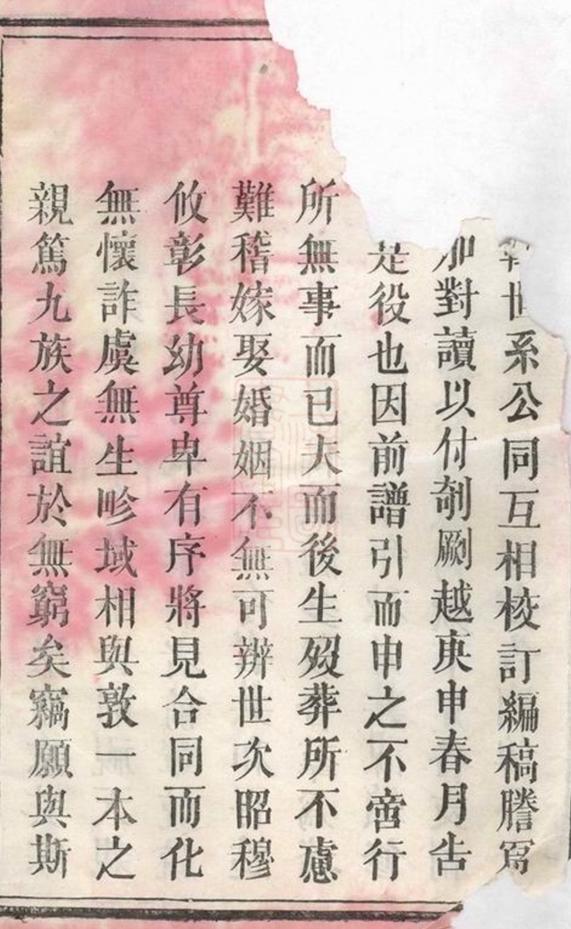 世系公同互相校訂編稿謄寫
加對讀以付剞劂越庚申春月告
是役也因前譜引而申之不啻行
所無事而已夫而後生殁葬所不慮
難稽嫁娶婚姻不無可辦世次昭穆
攸彰長幼尊卑有序將見合同而化
無懷詐虞無生畛域相與敦一本之
親篤九族之誼於無窮矣竊願與斯